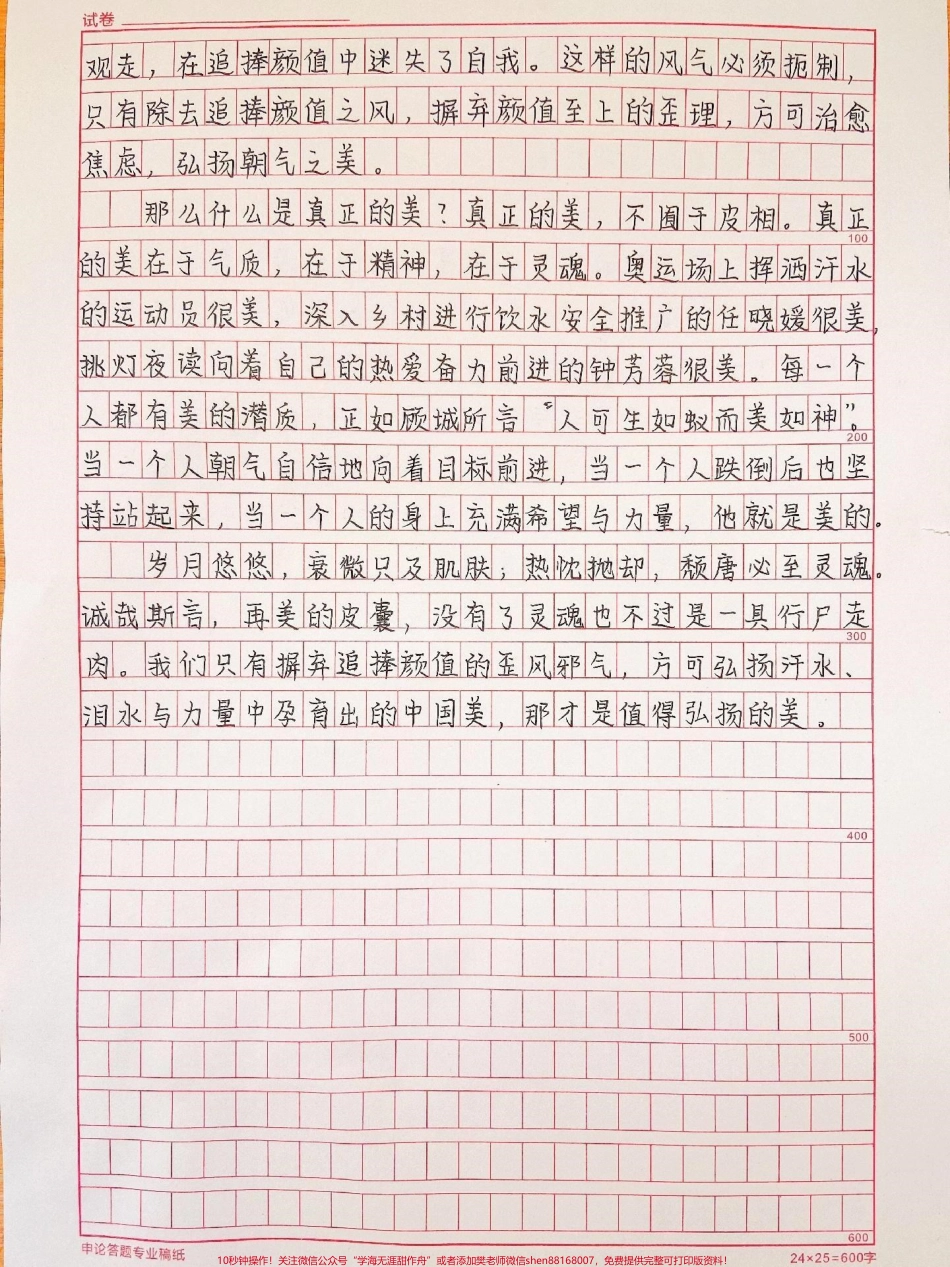 试卷
观走，在追捧颜值中迷失了自我。这样的风气必须扼制，
只有除去追捧颜值之风，摒弃颜值至上的歪理，方可治愈
焦虑，弘扬朝气之美。
那么什么是真正的美？真正的美，不囿于皮相。真正
100
的美在于气质，在于精神，在于灵魂。奥运场上挥洒汗水
的运动员很美，深入乡村进行饮水安全推广的任晓媛很美，
挑灯夜读向着自己的热爱奋力前进的钟芳蓉很美。每一个
人都有美的潜质，正如顾城所言“人可生如蚁而美如神”。
200
当一个人朝气自信地向着目标前进，当一个人跌倒后也坚
持站起来，当一个人的身上充满希望与力量，他就是美的。
岁月悠悠，衰微只及肌肤；热忱抛却，颓唐必至灵魂。
诚哉斯言，再美的皮囊，没有了灵魂也不过是一具行尸走
300
肉。我们只有摒弃追捧颜值的歪风邪气，方可弘扬汗水、
泪水与力量中孕育出的中国美，那才是值得弘扬的美。
400
500
600
申论答题专业稿纸
24×25=600字
10秒钟操作！关注微信公众号“学海无涯甜作舟”或者添加樊老师微信shen88168007，免费提供完整可打印版资料！